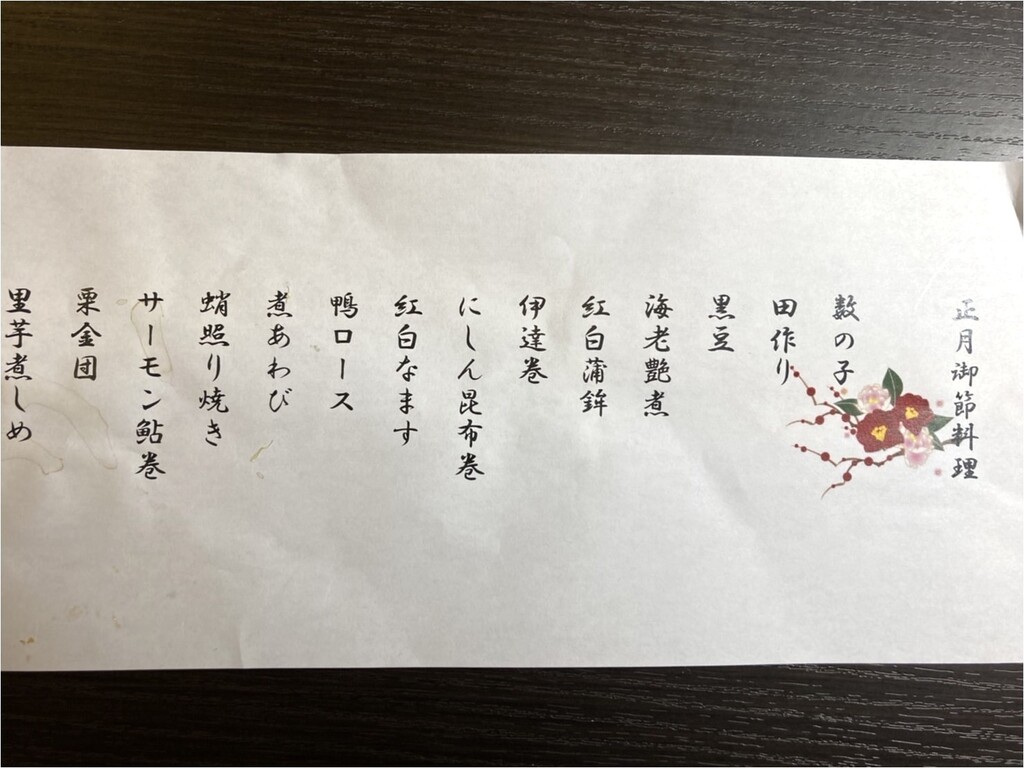 正月御節料理
数の子
田作り
黒豆
海老艶煮
紅白蒲鉾
伊達巻
にしん昆布巻
紅白なます
鴨ロース
煮あわび
蛸照り焼き
サーモン鮎巻
栗金団
里芋煮しめ